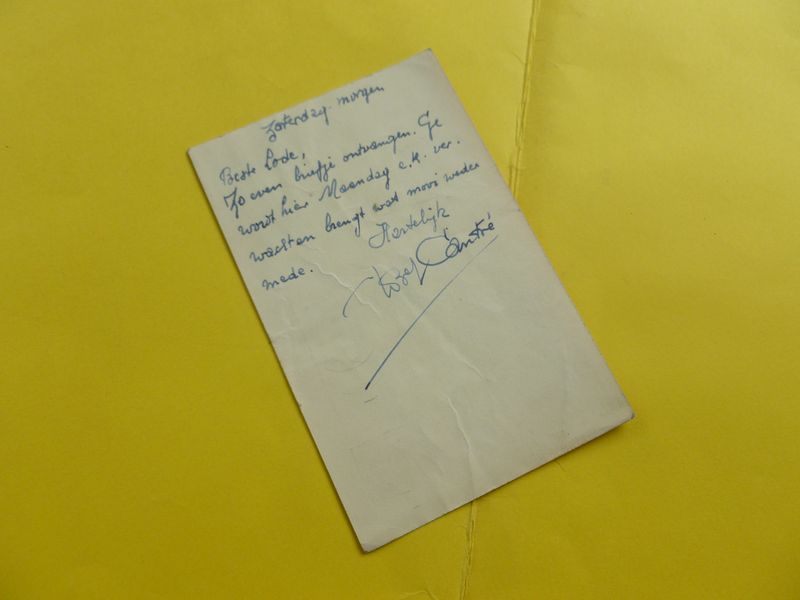 Zaterdag morgen
Beste Lode,
Zo even briefje ontvangen. Ge
wordt hier Maandag e.k. ver-
wachten brengt wat mooi weder
mede.
Hartelijk
Jozef Cantré